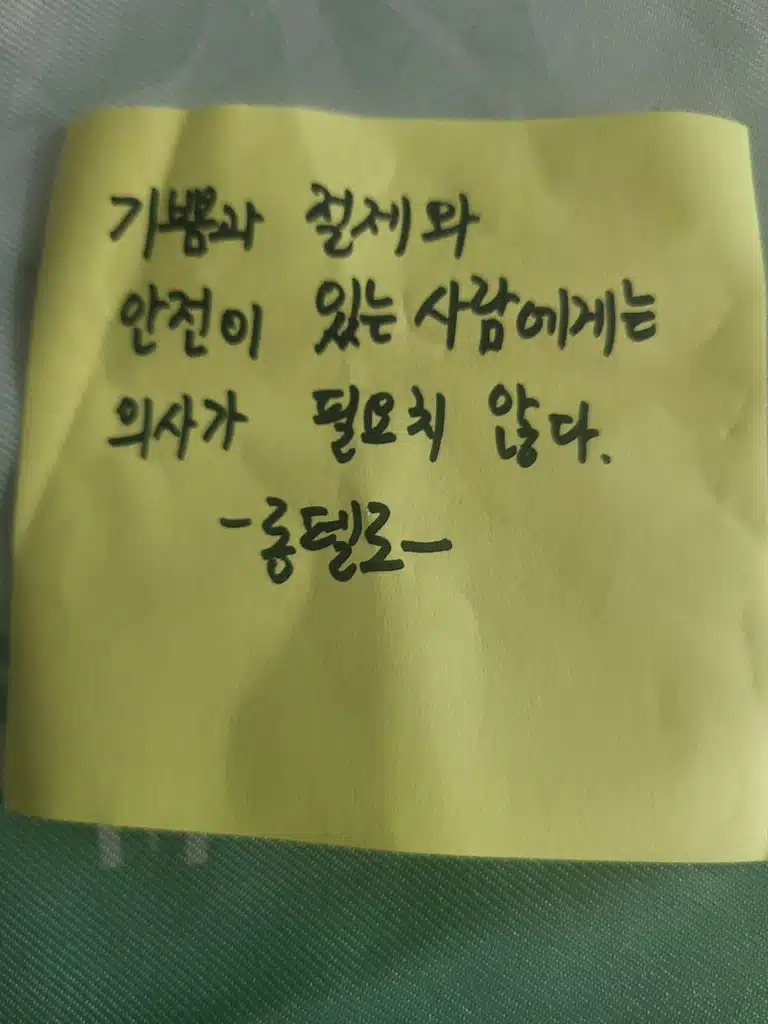 기쁨과 절제와
안전이 있는 사람에게는
의사가 필요치 않다.
-롱텔로-